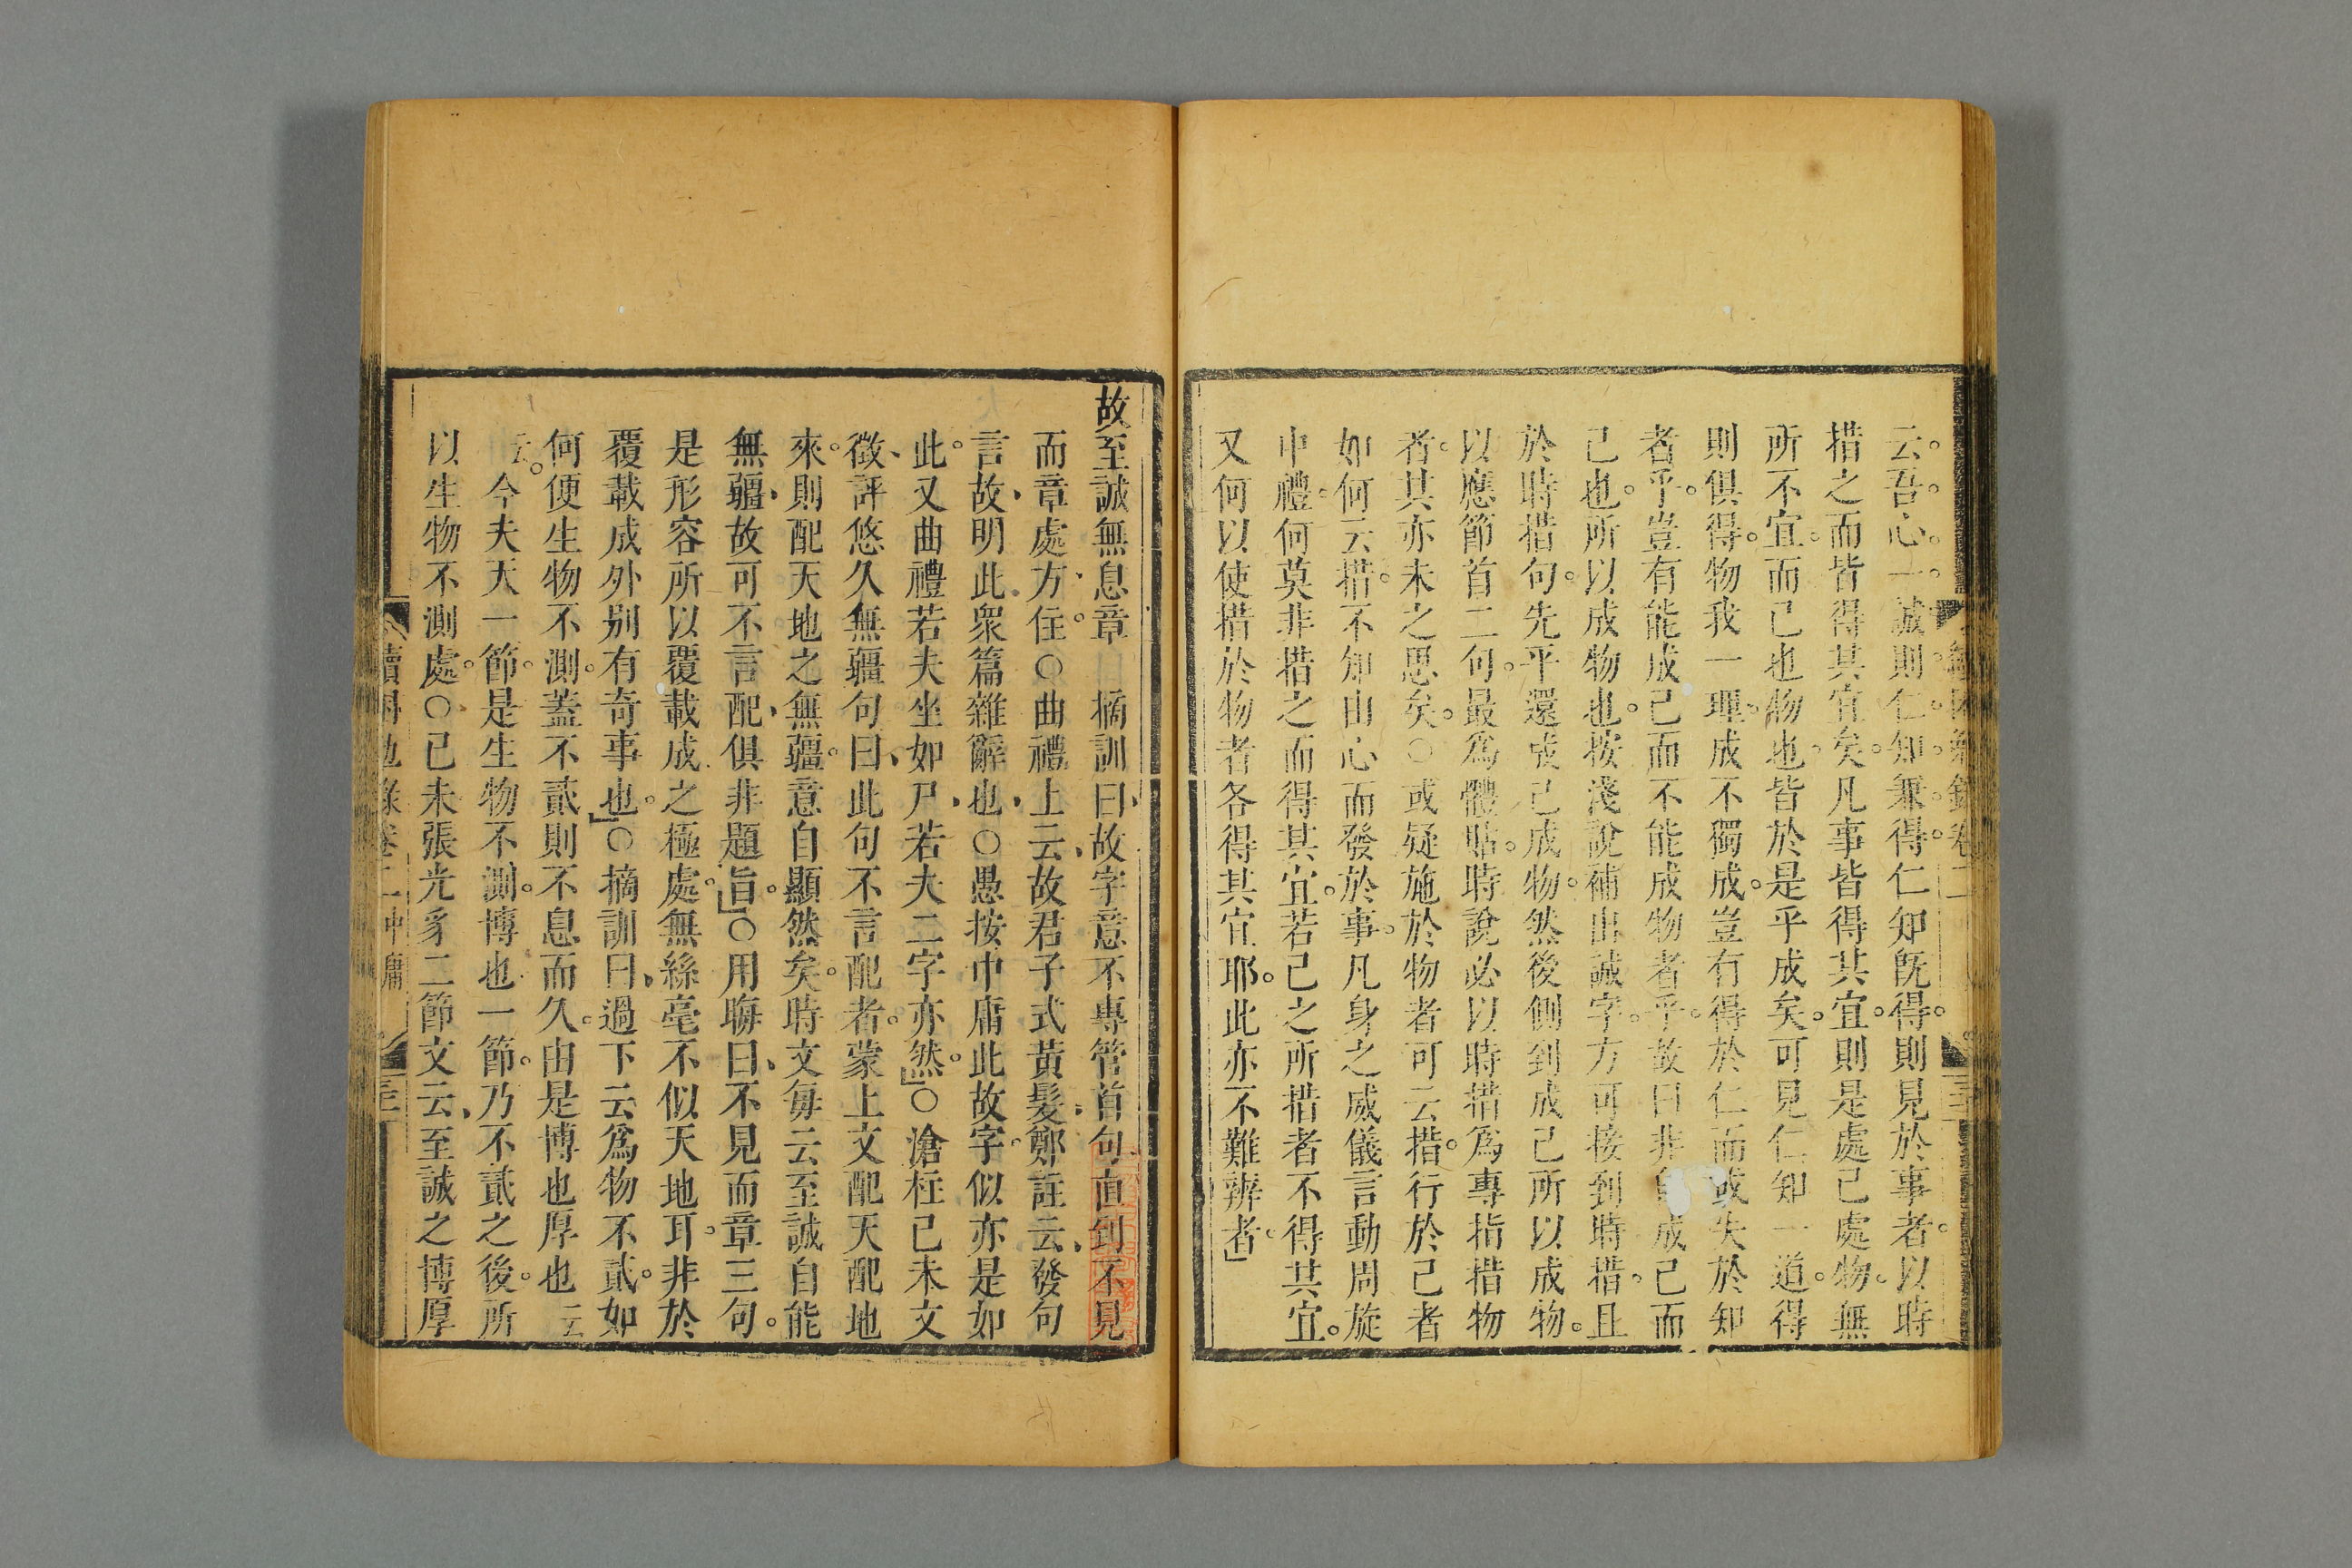 云吾心一誠則仁知兼得仁知既得則見於事者以時
措之而皆得其宜矣凡事皆得其宜則是處己處物無
所不宜而已也物也皆於是乎成矣可見仁知一道得
則俱得物我一理成不獨成豈有得於仁而或失於知
者乎豈有能成己而不能成物者乎故曰非自成己而
己也所以成物也按淺說補出誠字方可接到時措且
於時措句先平還成己成物然後側到成己所以成物
以應節首二句最爲體貼時說必以時措爲專指措物
者其亦未之思矣○或疑施於物者可云措行於己者
如何云措不知由心而發於事凡身之威儀言動周旋
中禮何莫非措之而得其宜若己之所措者不得其宜
又何以使措於物者各得其宜耶此亦不難辨者
故至誠無息章 摘訓曰故字意不專管首句直到不見
而章處方住○曲禮上云故君子式黃髮鄭註云發句
言故明此衆篇雜辭也○愚按中庸此故字似亦是如
此又曲禮若夫坐如尸若夫二字亦然○滄柱己未文
徵評悠久無疆句曰此句不言配者蒙上文配天配地
來則配天地之無疆意自顯然矣時文每云至誠自能
無疆故可不言配俱非題旨○用晦曰不見而章三句
是形容所以覆載成之極處無絲毫不似天地耳非於
覆載成外别有奇事也○摘訓曰過下云爲物不貳如
何便生物不測蓋不貳則不息而久由是博也厚也云
云今夫天一節是生物不測博也一節乃不貳之後所
以生物不測處○己未張光豸二節文云至誠之博厚
續困勉錄卷二 中庸